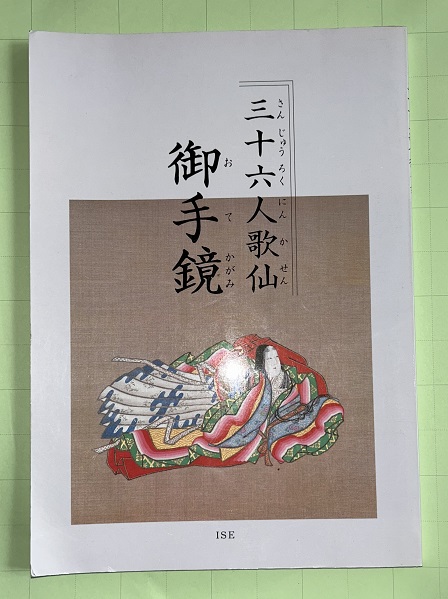 三十六人歌仙
さんじゅうろくにんかせん
御手鏡
おてかがみ
ISE